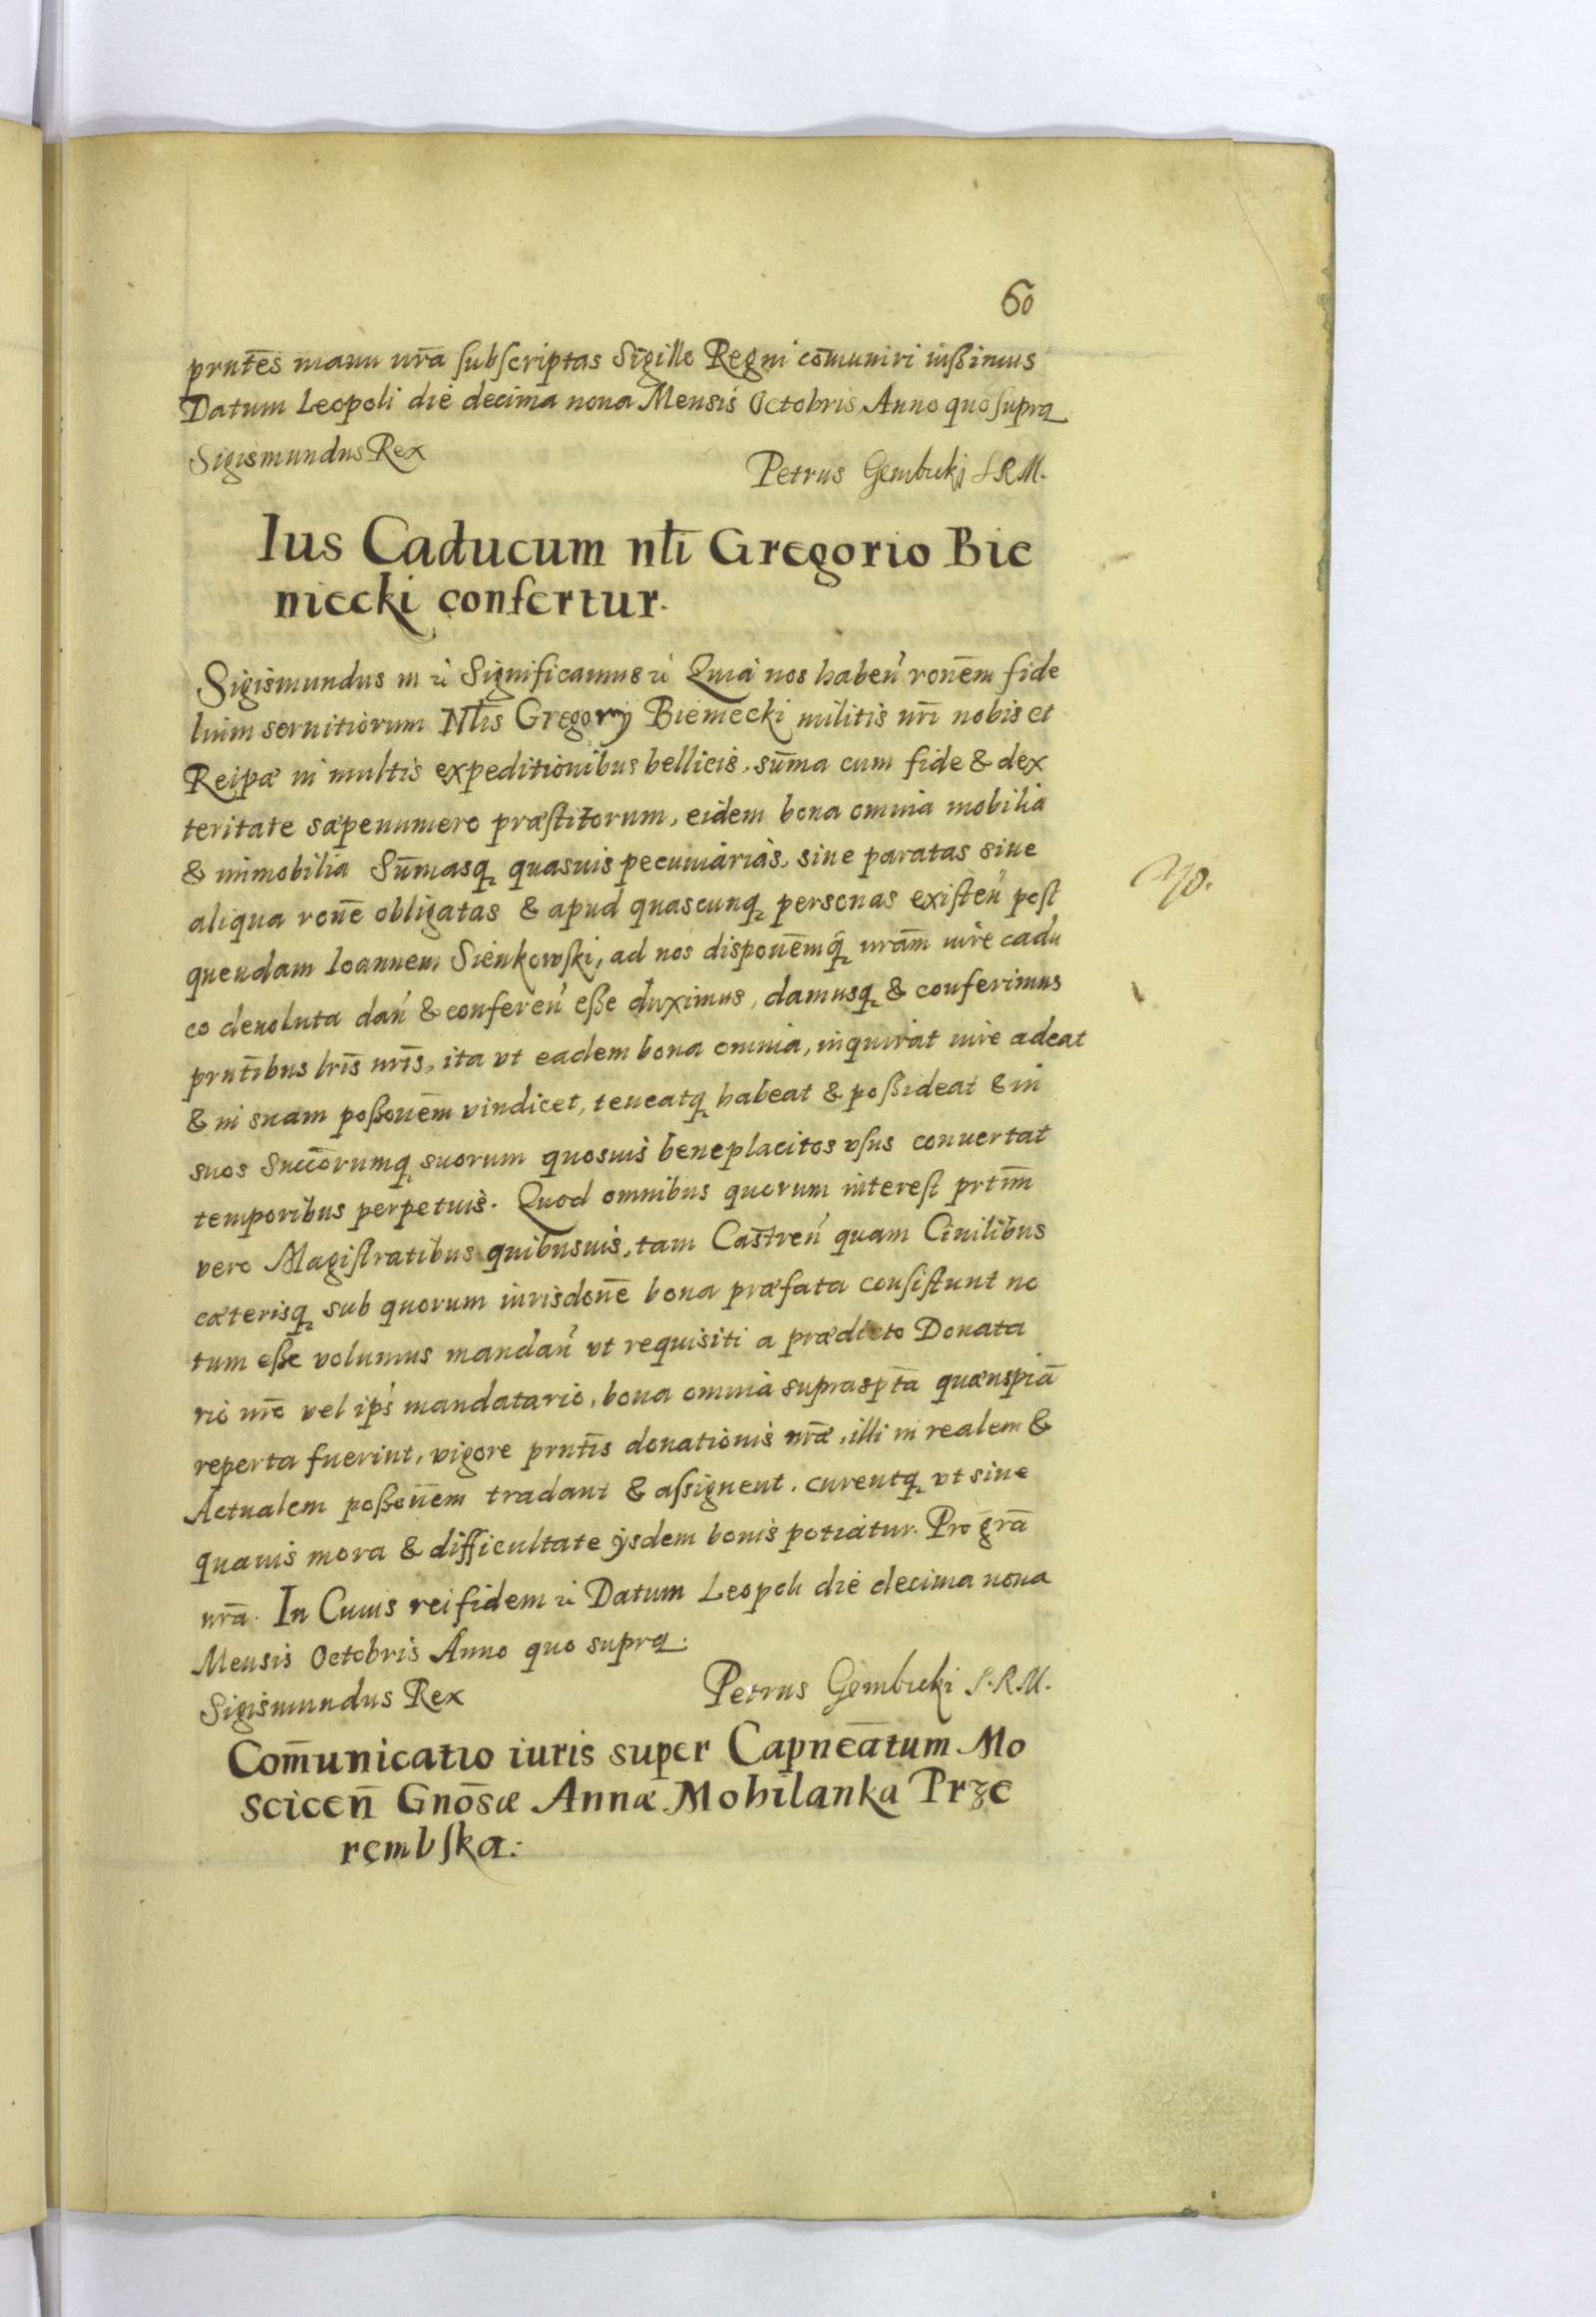 60
prntēs manu nrā subscriptas Sigillo Regni com̄uniri iussimus
Datum Leopoli die decima nona Mensis Octobris Anno quo supra
Sigismundus Rex
Petrus Gembicki S R M.
Ius Caducum nt̄i Gregorio Bie
niecki confertur.
Sigismundus III etc Significamus etc Quia nos haben̄ ronēm fide
lium seruitiorum Nt̄is Gregorij Bieniecki militis nrī nobis et
Reipæ in multis expeditionibus bellicis, sum̄a cum fide & dex
teritate sæpenumero præstitorum, eidem bona omnia mobilia
& immobilia Sum̄asq quasuis pecuniarias, siue paratas siue
aliqua ronē obligatas & apud quascunq personas existen̄ post
quendam Ioannem Sienkowski, ad nos disponēmq nrām iure cadu
co deuoluta dan̄ & conferen̄ esse duximus, damusq & conferimus
prntībus lrīs nrīs, ita vt eadem bona omnia, inquirat iure adeat
& in suam possonēm vindicet, teneatq habeat & possideat & in
suos Succōrumq suorum quosuis beneplacitos vsus conuertat
temporibus perpetuis. Quod omnibus quorum interest prtim̄
vero Magistratibus quibusuis, tam Castren̄ quam Ciuilibus
cæterisq sub quorum iurisdonē bona præfata consistunt no
tum esse volumus mandan̄ vt requisiti a prædicto Donata
rio nrō vel ips̄ mandatario, bona omnia suprasptā quæuspiā
reperta fuerint, vigore prntīs donationis nrǣ, illi in realem &
Actualem possonēm tradant & assignent, curentq vt siue
quauis mora & difficultate ijsdem bonis potiatur. Pro grā
nrā. In Cuius rei fidem etc Datum Leopoli die decima nona
Mensis Octobris Anno quo supra.
Sigismundus Rex
Petrus Gembicki S. R M.
Com̄unicatio iuris super Capneātum Mo
scicen̄ Gnōsæ Annæ Mohilanka Prze
rembska: